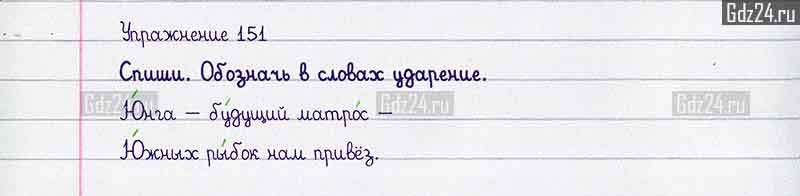 Gdz24.ru
Упражнение 151
Спиши. Обозначь в словах ударение.
Gdz24.ru Gdz24.ru Gdz24.ru
Ю́нга – бу́дущий матро́с –
Ю́жных ры́бок нам привёз.